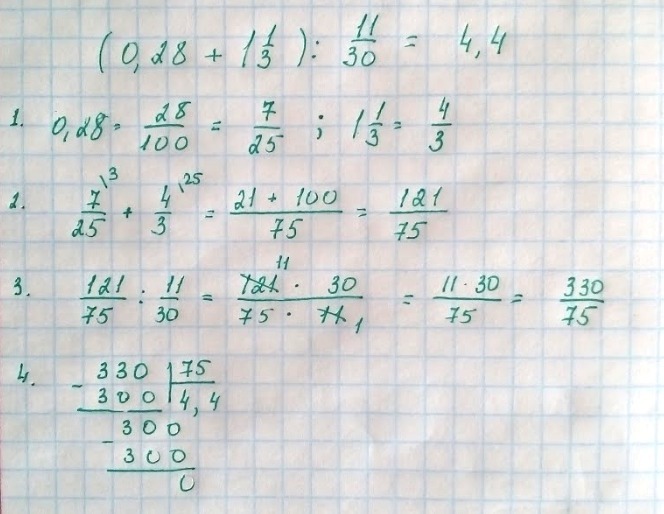 (0,28 + 1 1/3) : 11/30 = 4,4
1. 0,28 = 28/100 = 7/25 ; 1 1/3 = 4/3
2. 7\3/25 + 4\25/3 = 21 + 100/75 = 121/75
3. 121/75 : 11/30 = 121 11 · 30/75 · 11 1 = 11 · 30/75 = 330/75
4. - 330 | 75
300 | 4,4
- 300
300
0